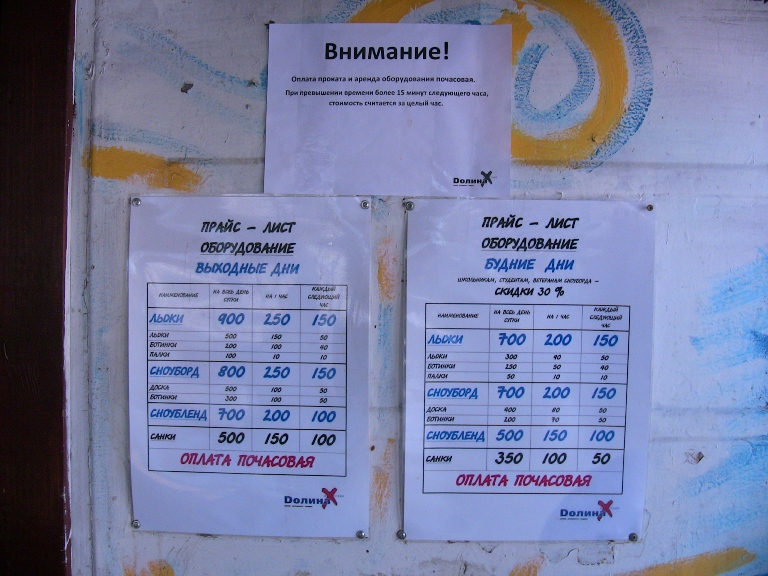 Внимание!
Оплата проката и аренда оборудования почасовая.
При превышении времени более 15 минут следующего часа,
стоимость считается за целый час.
Долина Х
ПРАЙС – ЛИСТ
ОБОРУДОВАНИЕ
ВЫХОДНЫЕ ДНИ
НАИМЕНОВАНИЕ НА ВЕСЬ ДЕНЬ СУТКИ НА 1 ЧАС КАЖДЫЙ СЛЕДУЮЩИЙ ЧАС
ЛЫЖИ 900 250 150
ЛЫЖИ 500 150 50
БОТИНКИ 200 100 40
ПАЛКИ 100 10 10
СНОУБОРД 800 250 150
ДОСКА 500 100 50
БОТИНКИ 300 100 50
СНОУБЛЕНД 700 200 100
САНКИ 500 150 100
ОПЛАТА ПОЧАСОВАЯ
Долина Х
ПРАЙС – ЛИСТ
ОБОРУДОВАНИЕ
БУДНИЕ ДНИ
ШКОЛЬНИКАМ, СТУДЕНТАМ, ВЕТЕРАНАМ СНОУБОРДА –
СКИДКИ 30 %
НАИМЕНОВАНИЕ НА ВЕСЬ ДЕНЬ СУТКИ НА 1 ЧАС КАЖДЫЙ СЛЕДУЮЩИЙ ЧАС
ЛЫЖИ 700 200 150
ЛЫЖИ 300 90 50
БОТИНКИ 250 50 40
ПАЛКИ 50 10 10
СНОУБОРД 700 200 150
ДОСКА 400 80 50
БОТИНКИ 200 70 50
СНОУБЛЕНД 500 150 100
САНКИ 350 100 50
ОПЛАТА ПОЧАСОВАЯ
Долина Х